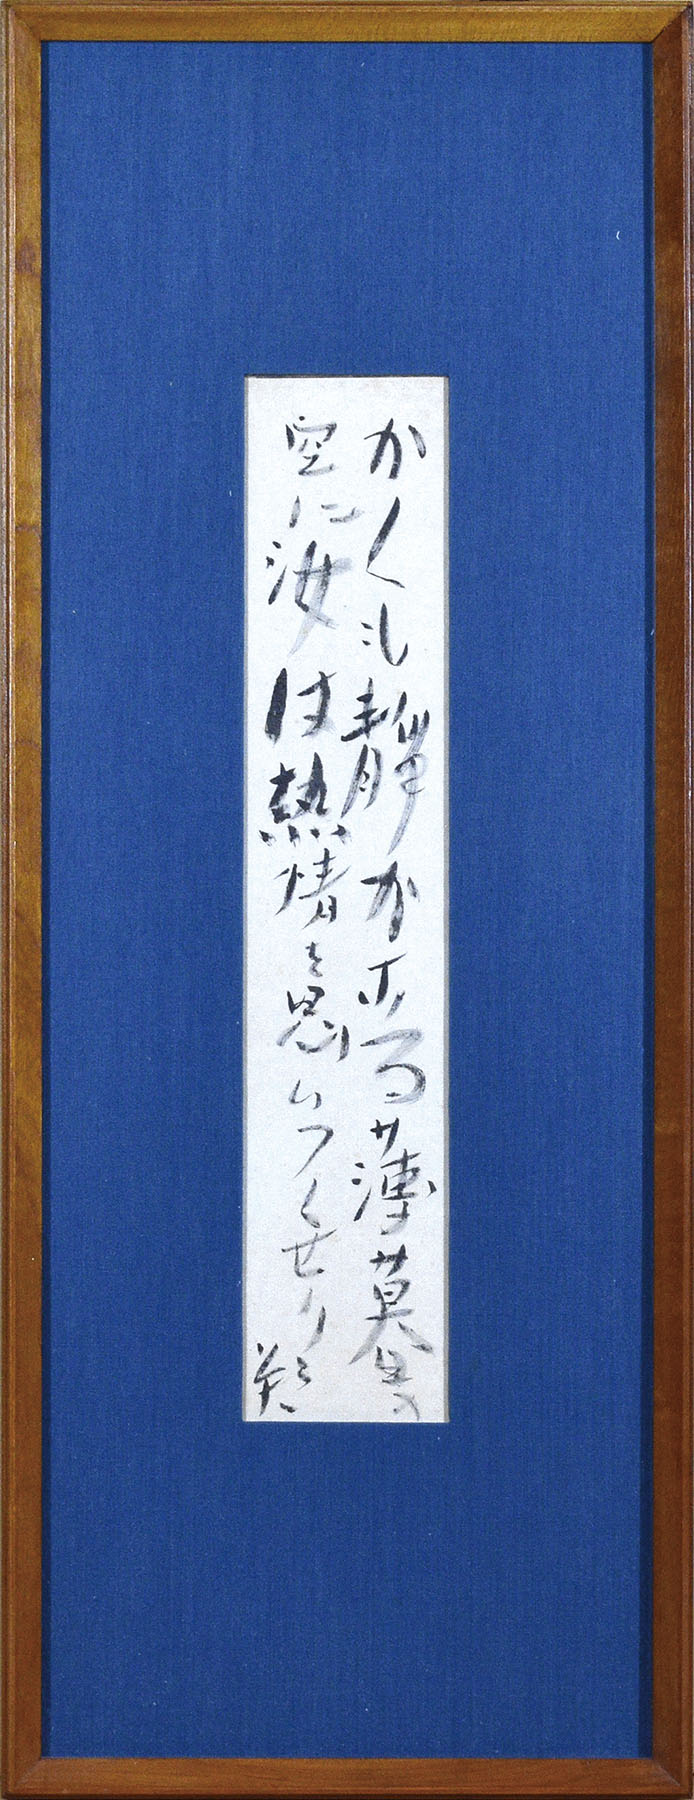 かくも靜かなる薄暮の
空に汝は熱情を思いつくせり 朔